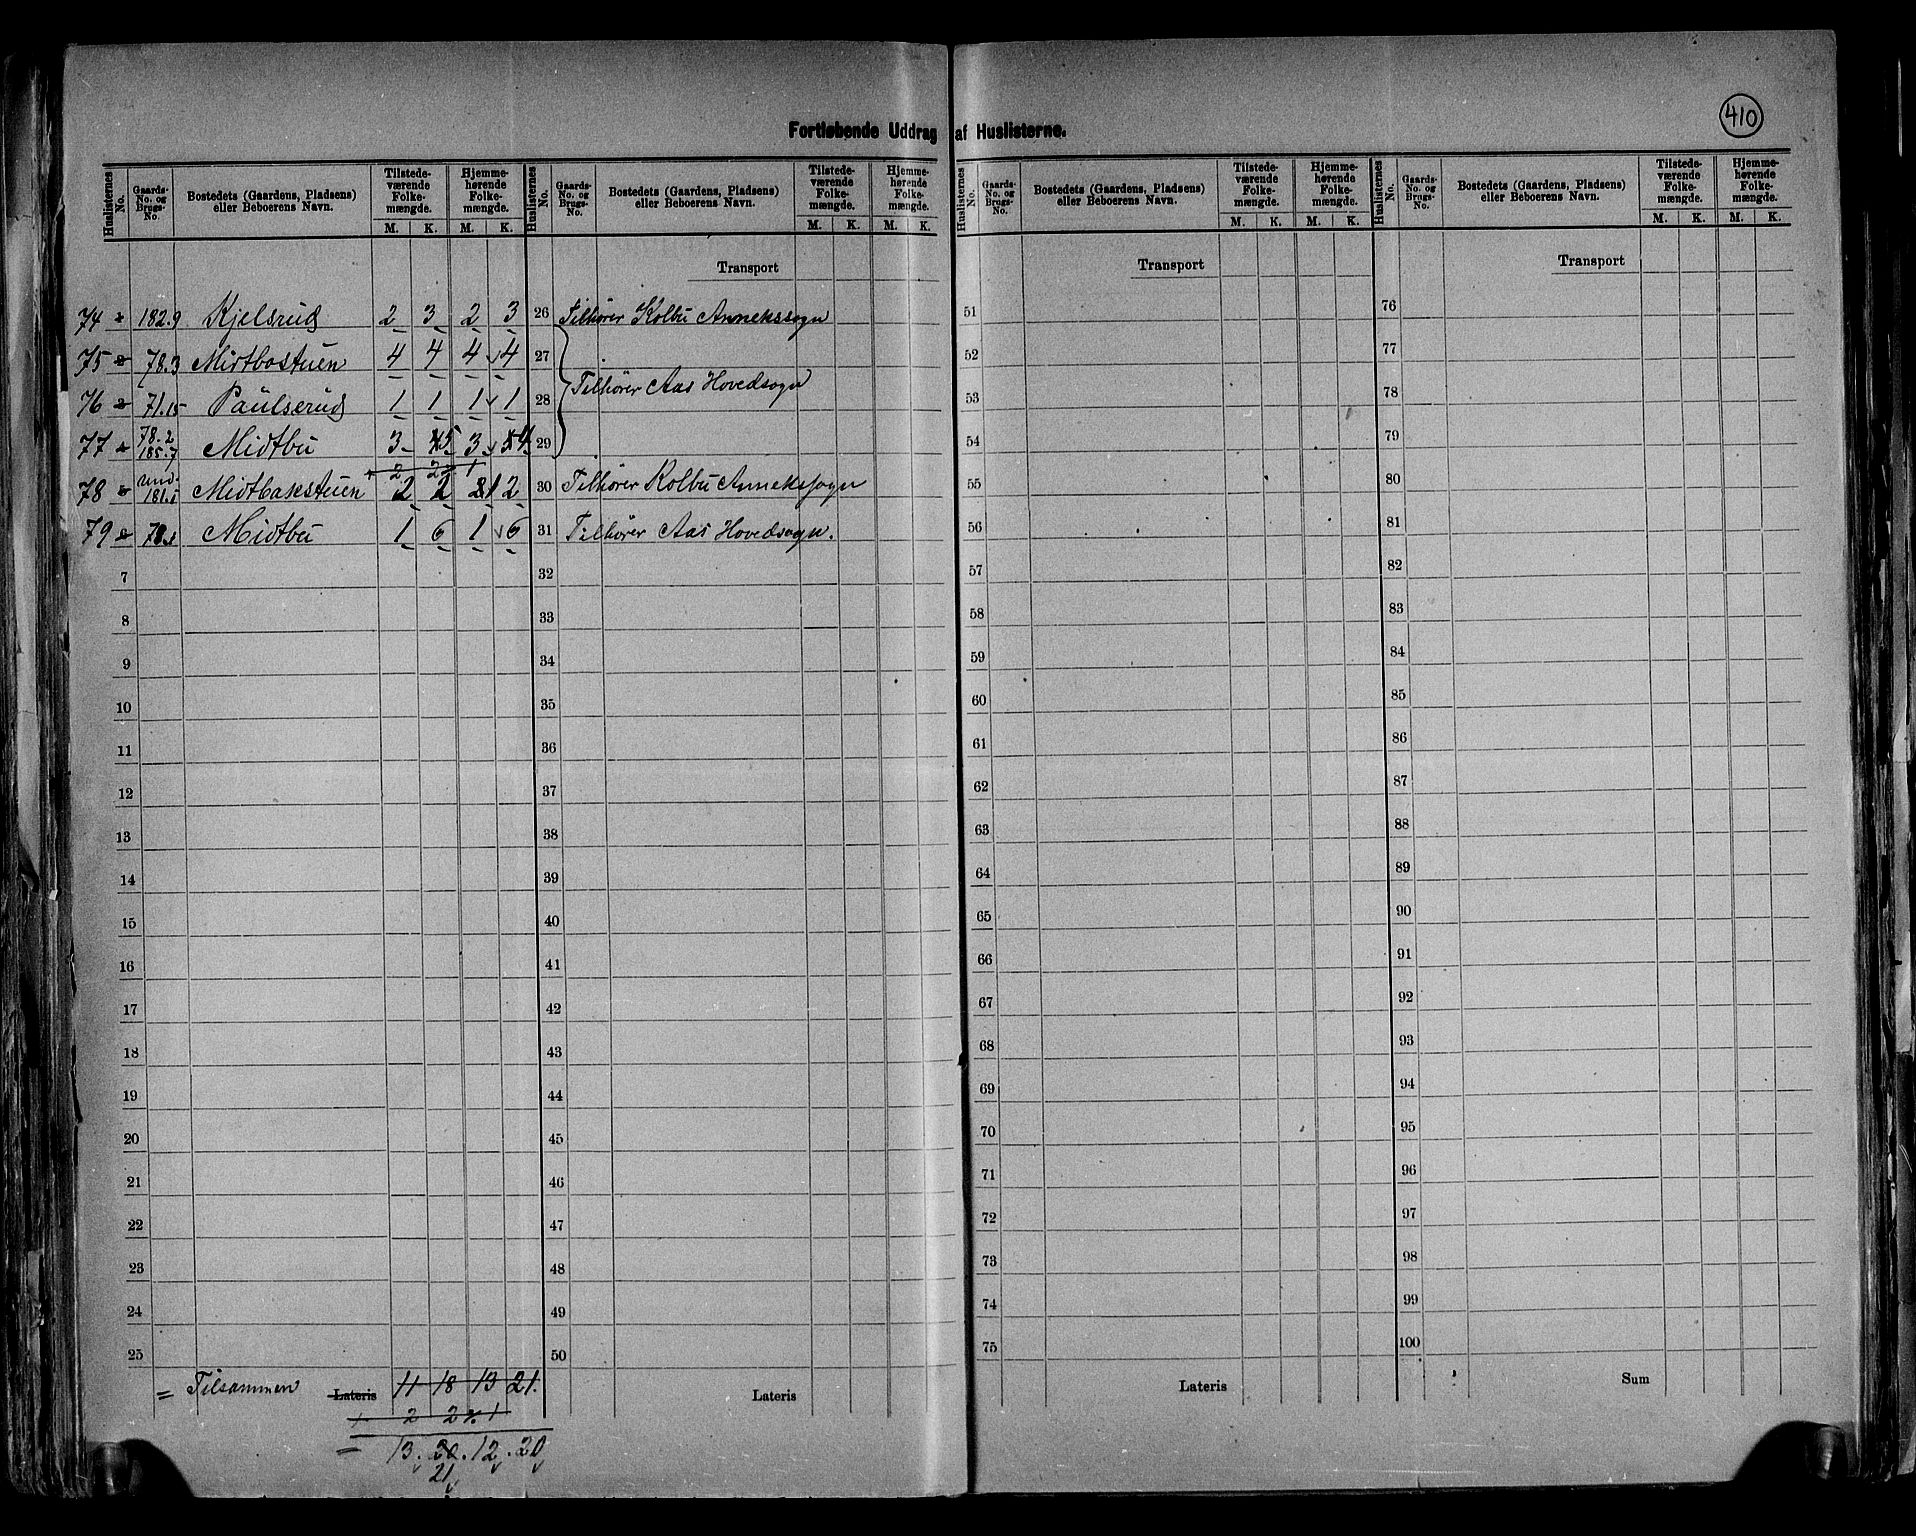 410
Fortløbende Uddrag af Huslisterne.
Huslisternes No. Gaards-No. og Brugs-No. Bostedets (Gaardens, Pladsens) eller Beboerens Navn. Tilstedeværende Folkemængde. M. K. Hjemmehørende Folkemængde. M. K.
Huslisternes No. Gaards-No. og Brugs-No. Bostedets (Gaardens, Pladsens) eller Beboerens Navn. Tilstedeværende Folkemængde. M. K. Hjemmehørende Folkemængde. M. K.
Huslisternes No. Gaards-No. og Brugs-No. Bostedets (Gaardens, Pladsens) eller Beboerens Navn. Tilstedeværende Folkemængde. M. K. Hjemmehørende Folkemængde. M. K.
Huslisternes No. Gaards-No. og Brugs-No. Bostedets (Gaardens, Pladsens) eller Beboerens Navn. Tilstedeværende Folkemængde. M. K. Hjemmehørende Folkemængde. M. K.
Transport Transport Transport
74 182.9 Kjelsrud 2 3 2 3
75 78.3 Midtbostuen 4 4 4 4
76 71.15 Paulserud 1 1 1 1
77 78.2 185.7 Midtbu 3 5 3 4
+ 2 2 % 1
78 und. 181.1 Midtbakstuen 2 2 1 2
79 Midtbu 1 6 1 6
7
8
9
10
11
12
13
14
15
16
17
18
19
20
21
22
23
24
25
= Tilsammen Lateris 11 18 13 21.
+ 2 2 % 1
= 13. 20. 12. 20
21
26 Tilhører Kolbu Annekssogn
27
28 Tilhører Aas Hovedsogn
29
30 Tilhører Kolbu Annekssogn
31 Tilhører Aas Hovedsogn.
32
33
34
35
36
37
38
39
40
41
42
43
44
45
46
47
48
49
50
Lateris
51
52
53
54
55
56
57
58
59
60
61
62
63
64
65
66
67
68
69
70
71
72
73
74
75
Lateris
76
77
78
79
80
81
82
83
84
85
86
87
88
89
90
91
92
93
94
95
96
97
98
99
100
Sum